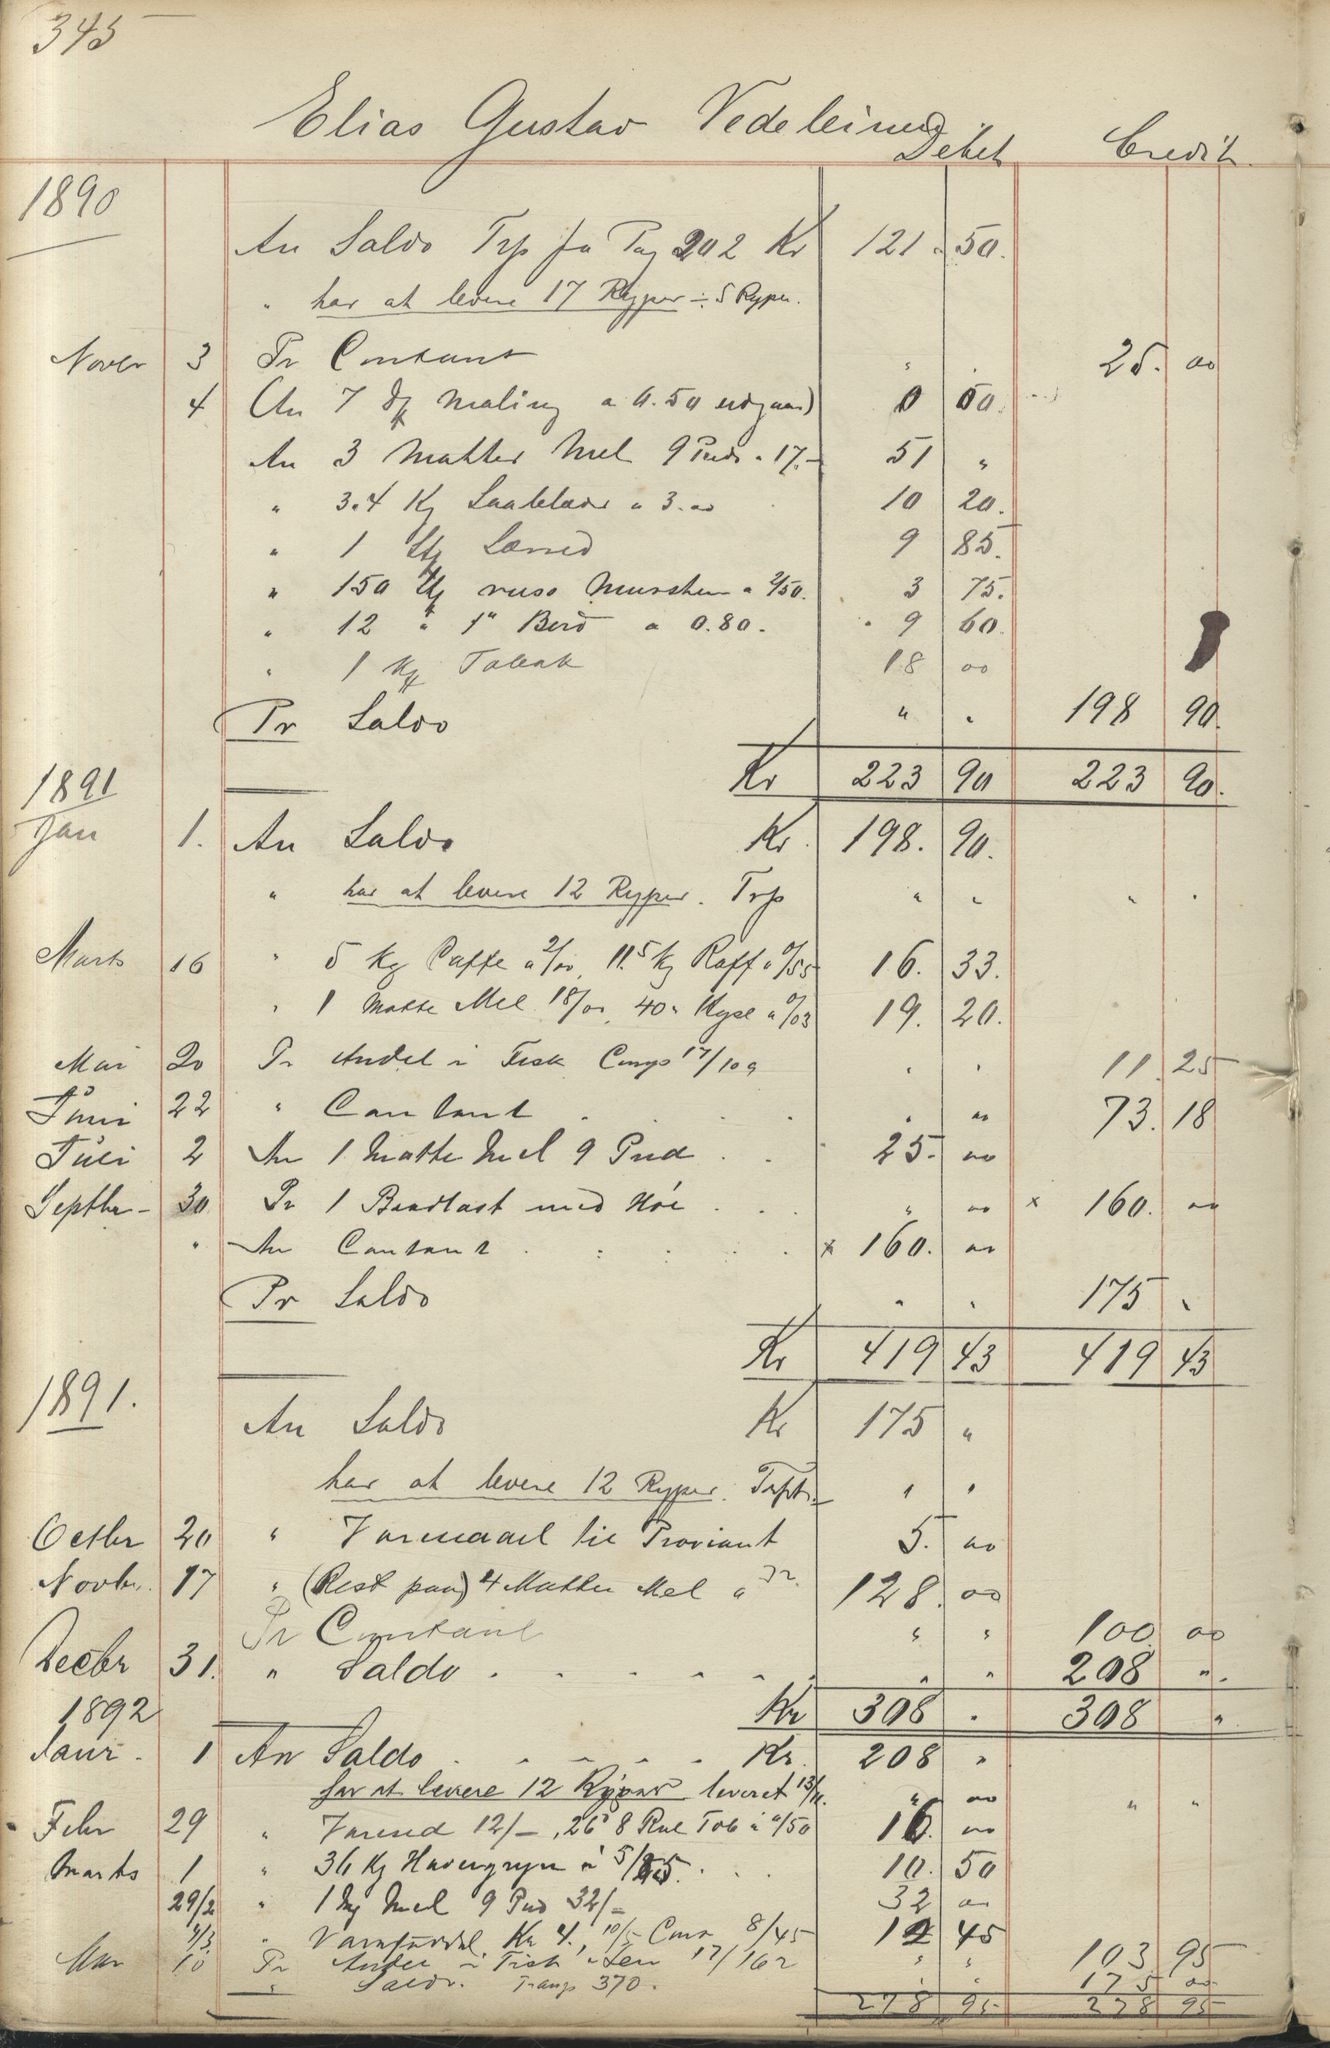 345
Elias Gustav Debet Credit
1890
An Saldo Trp fra Pag 202 Kr 121 50.
" har at levere 17 Ryper ÷ 5 Ryper.
Novbr 3 Pr Contant " . 25. 00
4 An 7 maling a 0.50 udgaar) 0 00
An 3 Matter Mel 9 Puds a 17.- 51 "
" 3.4 Kg Saalelæder a 3.00 10 20.
" 1 Stk 9 85.
" 150 Stk russ Mursten a 2/50. 3 75.
" 12 " 1" Bord a 0.80. 9 60.
" 1 Tobak 18 00
Pr Saldo " . 198 90.
Kr 223 90 223 90.
1891
Jan 1. An Saldo Kr. 198. 90.
" har at levere 12 Ryper. Trp " " " .
Marts 16 " 5 Kg Caffe a 2/00, 11.5 Kg Raff a 0/55 16. 33.
" 1 Matte Mel 18/00, 40 a 0/03 19. 20.
Mai 20 Pr Andel i Fisk 17/109 . . 11. 25
Juni 22 " Contant . . . . . 00 73. 18
Juli 2 An 1 Matte Mel 9 Pud . . 25. 00
Septbr - 30 Pr 1 Baadlast med Höe . . . " 00 x 160. 00
" An Contant . . . . . x 160. 00
Pr Saldo " . 175 "
Kr 419 43 419 43
1891.
An Saldo Kr 175 "
har at levere 12 Ryper. Trpt. " "
Octbr 20 " til Proviant 5. 00
Novbr. 17 " (Rest paa) 4 Matter Mel a 32. 128. 00
Pr Contant " " 100 00
Decbr 31. " Saldo . . . . . . " " 208 ".
1892 Kr 308 . 308 "
Janr. 1 An Saldo . . . . . Kr. 208 "
har at levere 12 Ryper leveret 13/11. " 00 " "
Febr 29 " 12/-, 8 Rul Tob a 0/50 16. 00
Marts 1 " 36 Kg Havregryn . . 10. 50
29/2 " 1 Mel 9 Pud 32/- 32 00
4/3 " Kr 4., 10/5 8/45 12 45
Mai 10 Pr Andel i Fisk 17/162 " " 103 95
" Saldo. Transp 370. . . 175 00
278 95 278 95